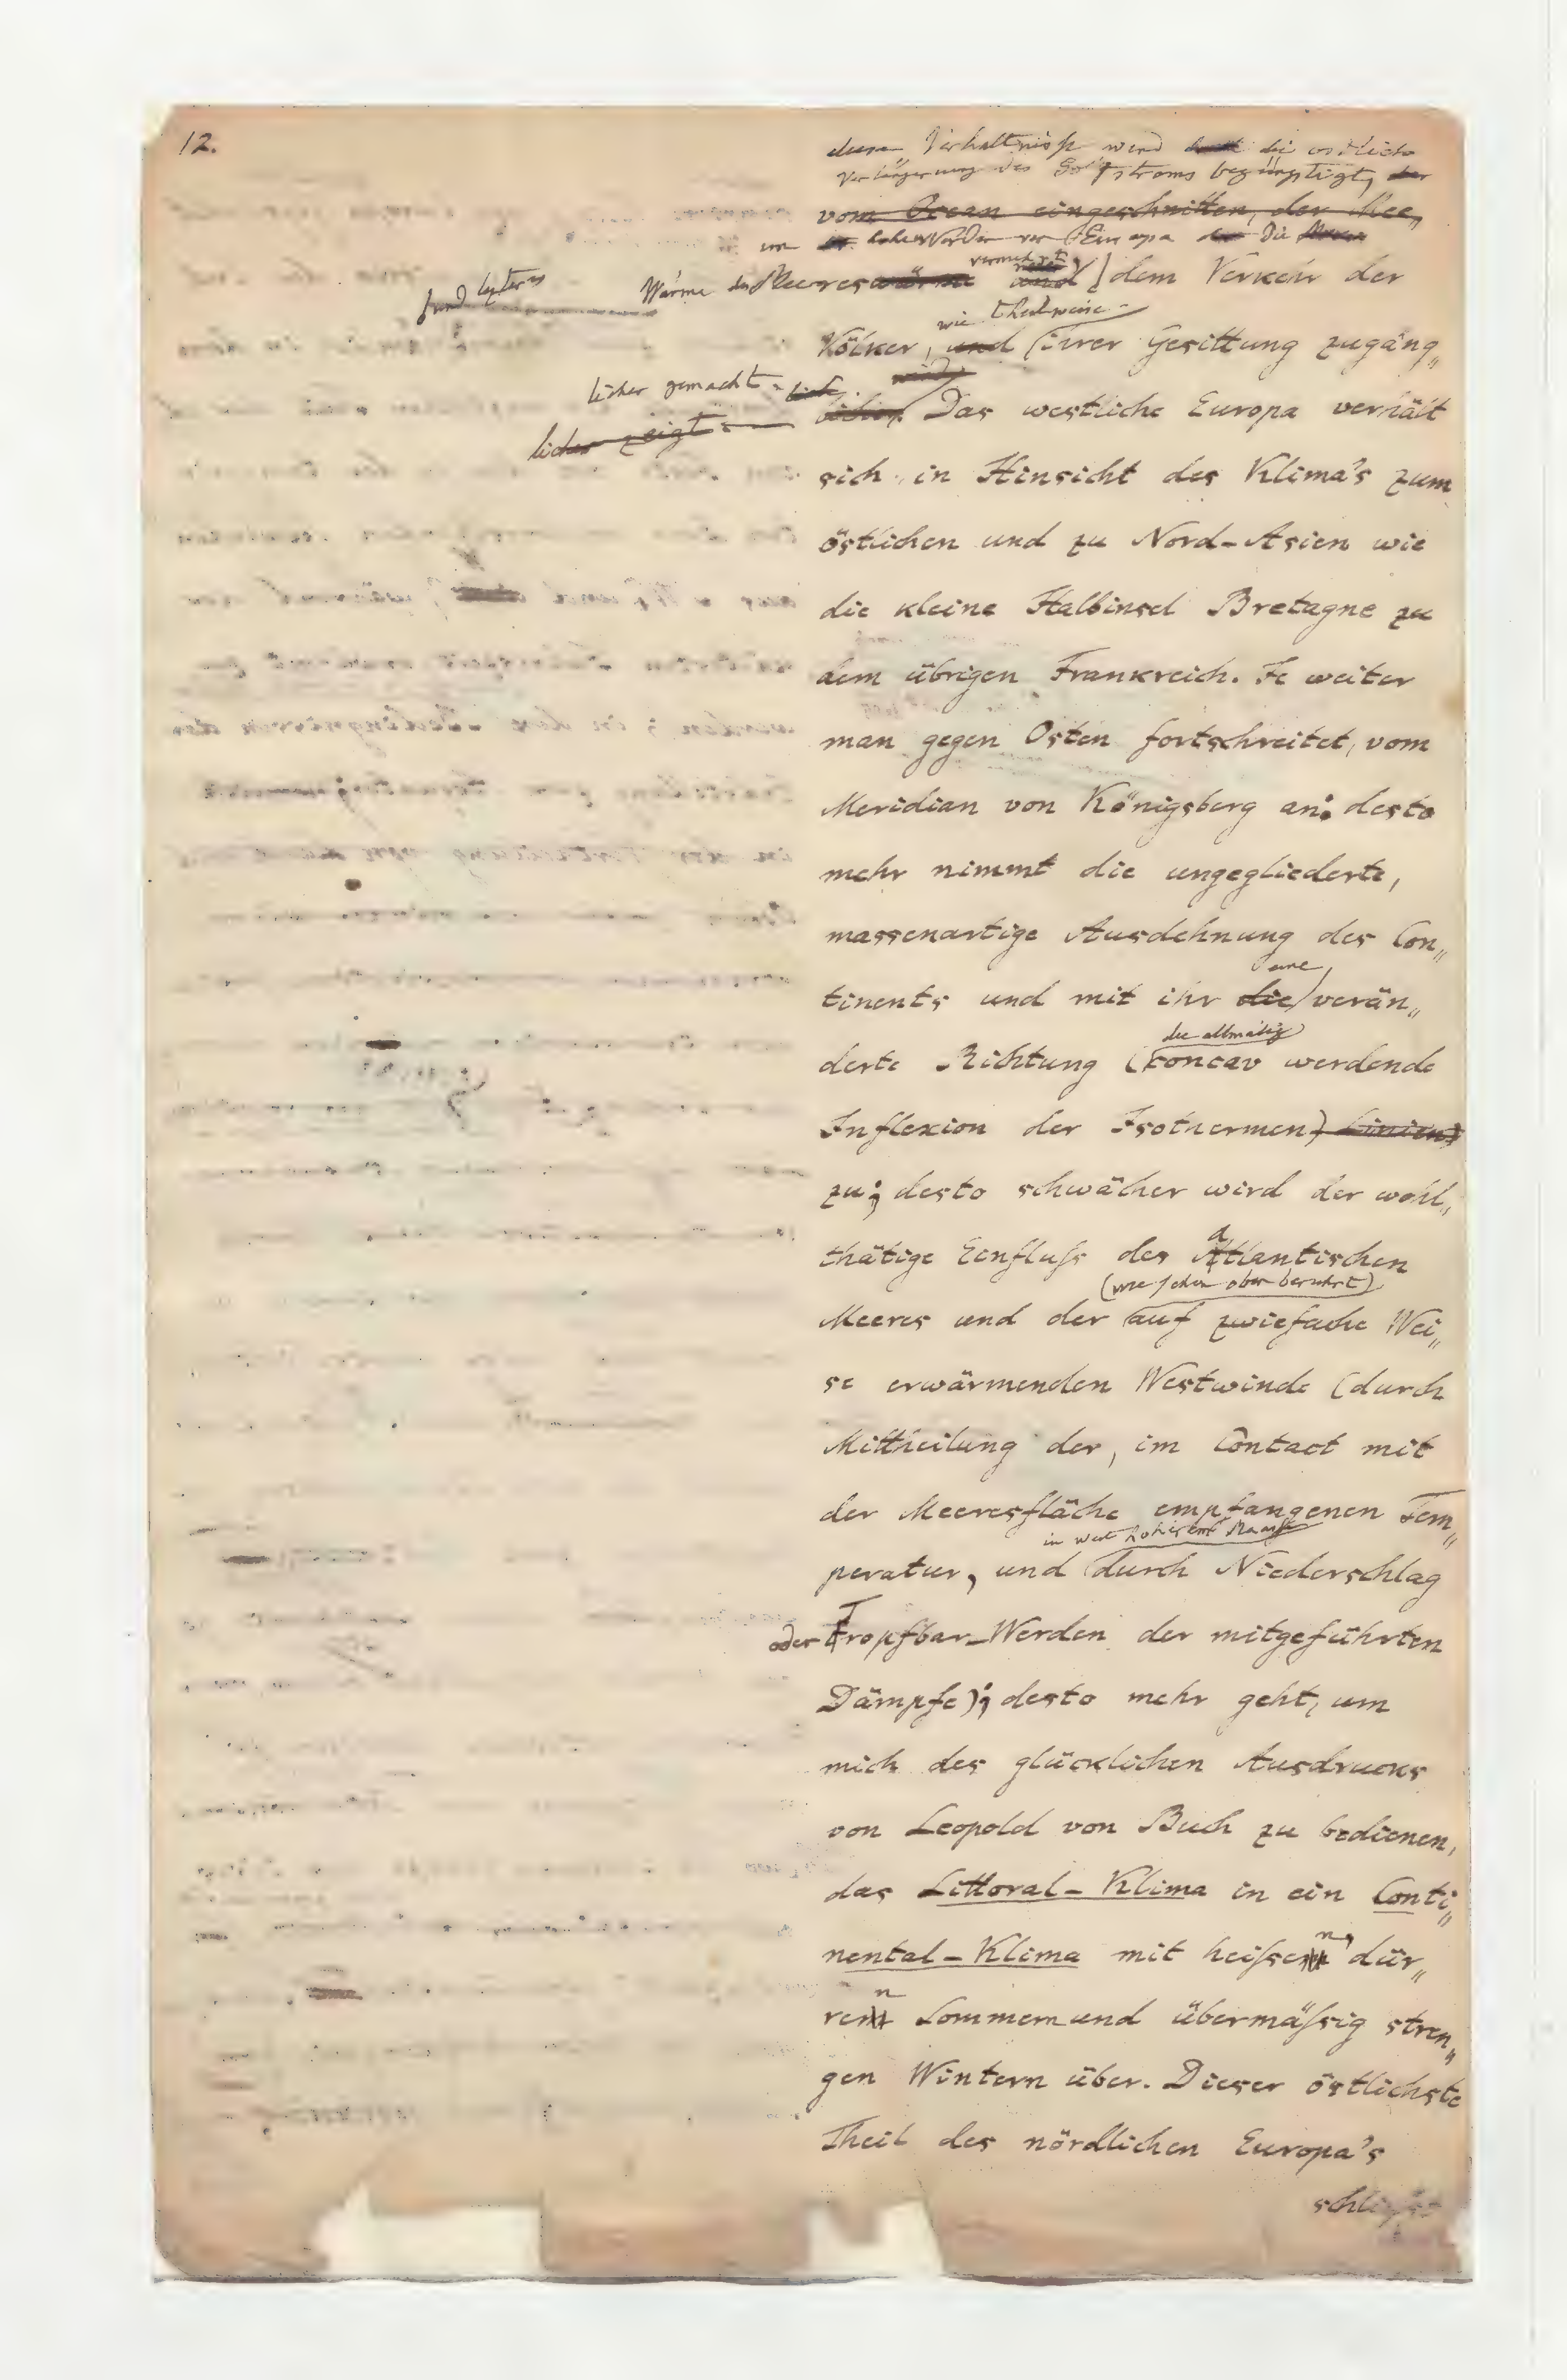 12.
Verhältniss wird die östliche
Verlängerung des Golfstroms begünstigt, der
vom Ocean eingeschnitten, der Mee,,
im hohen Norden von Europa die
Wärme des Meereswärme vermehrt und dem Verkehr der
wie theilweise
Völker, und ihrer Gesittung zugäng,,
licher gemacht wird
licher zeigt
licher. Das westliche Europa verhält
sich in Hinsicht des Klima's zum
östlichen und zu Nord-Asien wie
die kleine Halbinsel Bretagne zu
dem übrigen Frankreich. Je weiter
man gegen Osten fortschreitet, vom
Meridian von Königsberg an: desto
mehr nimmt die ungegliederte,
massenartige Ausdehnung des Con,,
eine
tinents und mit ihr die verän,,
die allmälig
derte Richtung (concav werdende
Inflexion der Isothermen) Linien)
zu; desto schwächer wird der wohl,,
thätige Einfluſs des atlantischen
(wie schon oben berührt)
Meeres und der auf zwiefache Wei,,
se erwärmenden Westwinde (durch
Mittheilung der, im Contact mit
der Meeresfläche empfangenen Tem,,
in weit höherem Maaße
peratur, und durch Niederschlag
oder Tropfbar-Werden der mitgeführten
Dämpfe); desto mehr geht, um
mich des glücklichen Ausdrucks
von Leopold von Buch zu bedienen,
das Littoral-Klima in ein Conti,,
nental-Klima mit heiſsen, dür,,
ren Sommern und übermäſsig stren,,
gen Wintern über. Dieser östlichste
Theil des nördlichen Europa's
schlieſst